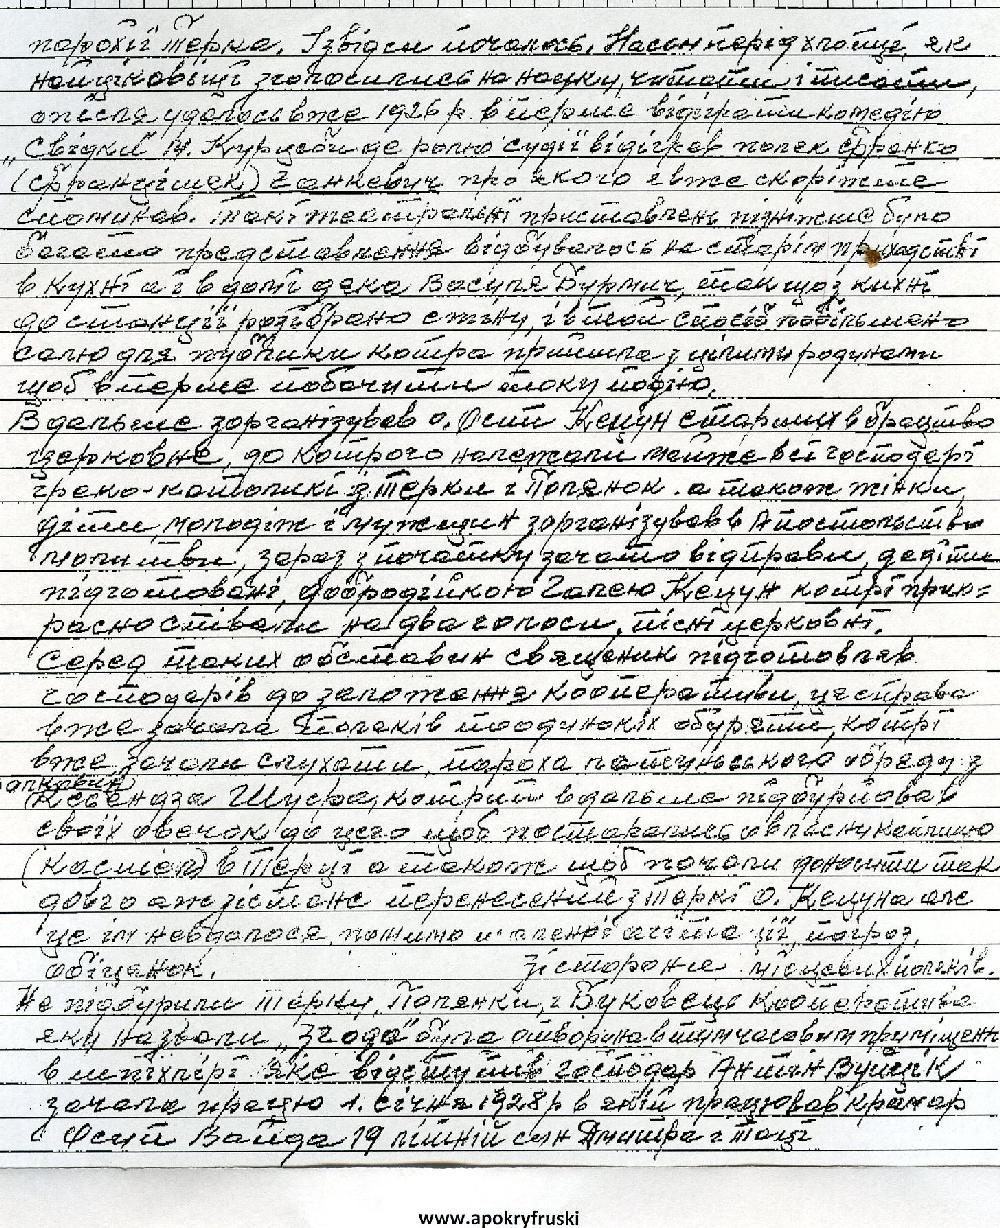 парохії Терка. Ізвідси почалось. Насамперід хлопці, як
найцікавіщі зголосились на науку, читати і писати,
опісля удалось вже 1926 р. вперше відіграти комедію
"Свідки" М. Курцеби де ролю судії відіграв поляк Франко
(Францішек) Ганкевич про якого я вже скоріжше
споминав. Такі театральні приставлень пізнійше було
богато представлення відбувалось на старім приходстві
в кухні а і в домі дяка Василя Бурмич, так що з кухні
до станції розібрано стіну, і в той спосіб побільшено
салю для публики котра прийшла з цілими родинами
щоб вперше побачити таку подію.
В дальше зорганізував о. Осип Кецун старших в братство
церковне, до котрого належали майже всі господарі
греко-католикі з Терки і Полянок. а також жінки,
діти, молодіж і мужчин зорганізував в Апостольство
молитви, зараз з початку зачато відправи, де діти
підготовані, добродійкою Галею Кецун котрі прик=
расно співали на два голоси, пісні церковні.
Серед таких обставин священик підготовляв
господарів до заложення кооперативи, ця справа
вже зачала Поляків поодиноких обуряти, котрі
вже зачали слухати, пароха латинського обряду з
Ксєндза Шуфра, котрий в дальше підбурював
своїх овечок до цего щоб постарались о власну каплицю
(Косцёл) в Терці а також щоб почали доносити так
довго аж зістане перенесений з Теркі О. Кецуна але
це їм невдалося, помимо шаленої агітації, погроз,
обіцянок. зі стороне місцевих поляків.
Не підбурили Терку, Полянки, і Буковець Кооператива
яку назвали "Згода" була отворена в тимчасовим приміщенні
в шпіхлірі яке відступив господар Антін Вуйцік
зачала працю 1. січня 1928 р в якій працював крамар
Осип Вайда 19 літній син Дмитра і Таці
www.apokryfruski